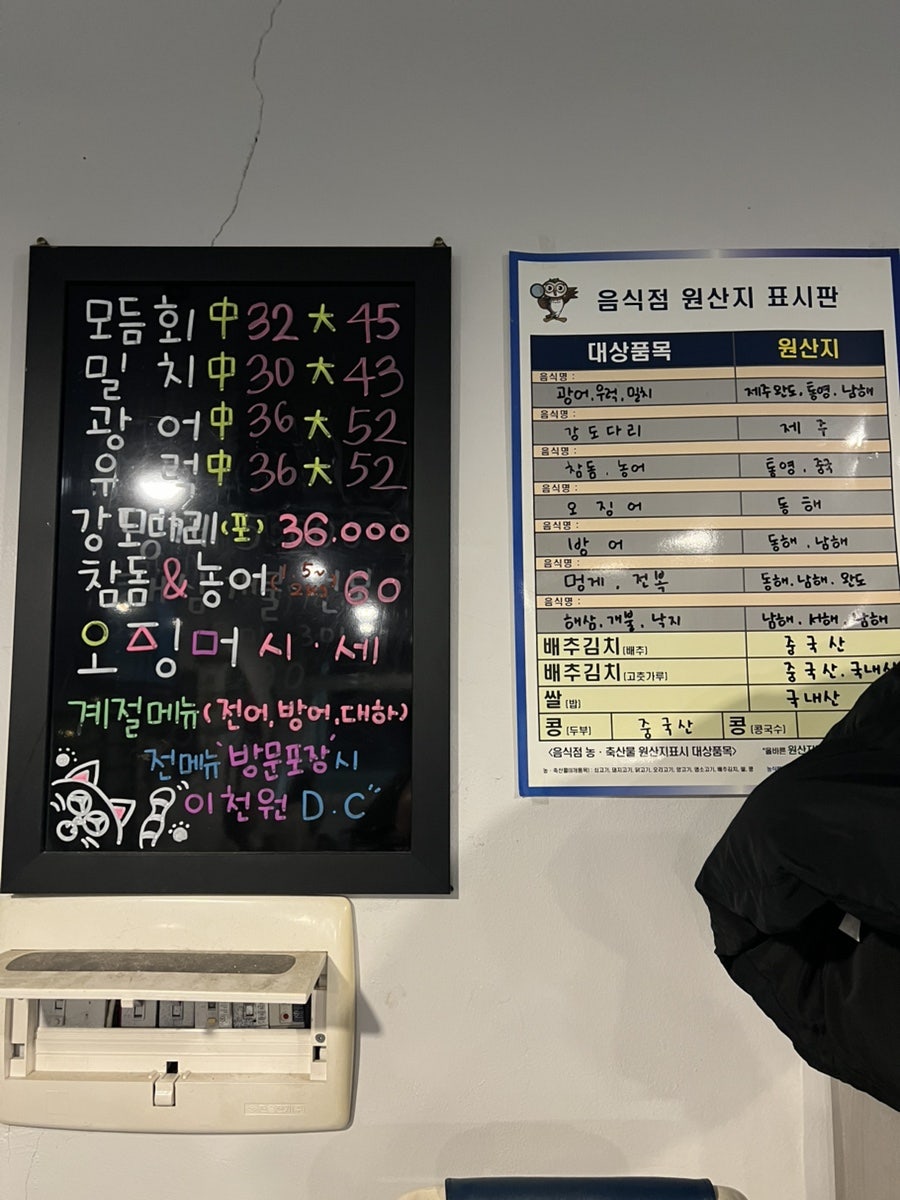 모듬회 中 32 大 45
밀 치 中 30 大 43
광 어 中 36 大 52
우 럭 中 36 大 52
강도다리 (포) 36.000
참돔 & 농어 60
오징어 시 · 세
계절메뉴 (전어, 방어, 대하)
전메뉴 방문포장시
"이천원 D.C"
음식점 원산지 표시판
대상품목 원산지
음식명 :
광어, 우럭, 밀치 제주 완도, 통영, 남해
음식명 :
강 도 다 리 제 주
음식명 :
참돔, 농어 통영, 중국
음식명 :
오 징 어 동 해
음식명 :
방 어 동해, 남해
음식명 :
멍게, 전복 동해, 남해, 완도
음식명 :
해삼, 개불, 낙지 남해, 서해, 남해
배추김치 (배추) 중 국 산
배추김치 (고춧가루) 중 국 산, 국내산
쌀 (밥) 국내산
콩 (두부) 중국산 콩 (콩국수)
<음식점 농 · 축산물 원산지표시 대상품목> "올바른 원산지